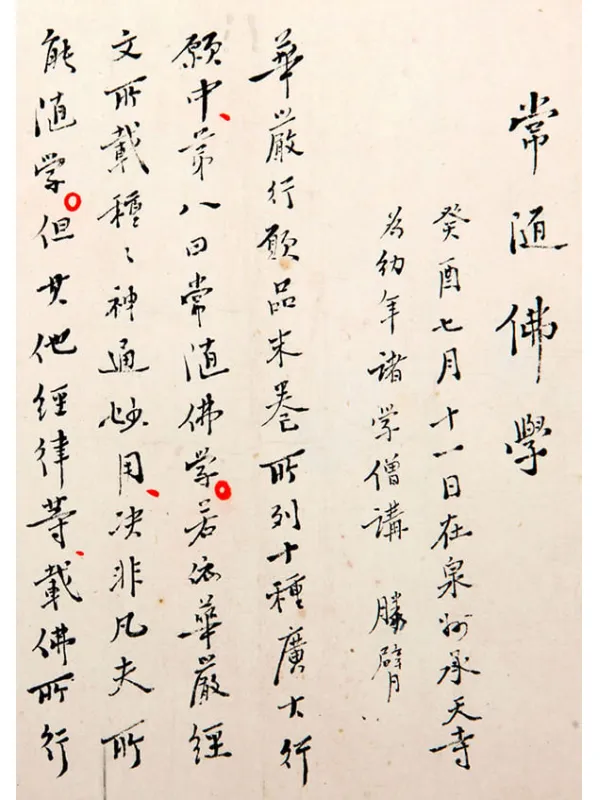 常随佛學
癸酉七月十一日在泉州承天寺
為幼年諸学僧講 勝臂
華嚴行願品末卷所列十種廣大行
願中、第八曰常随佛学。若依華嚴經
文所載種々神通妙用、决非凡夫所
能随学。但其他經律等、載佛所行